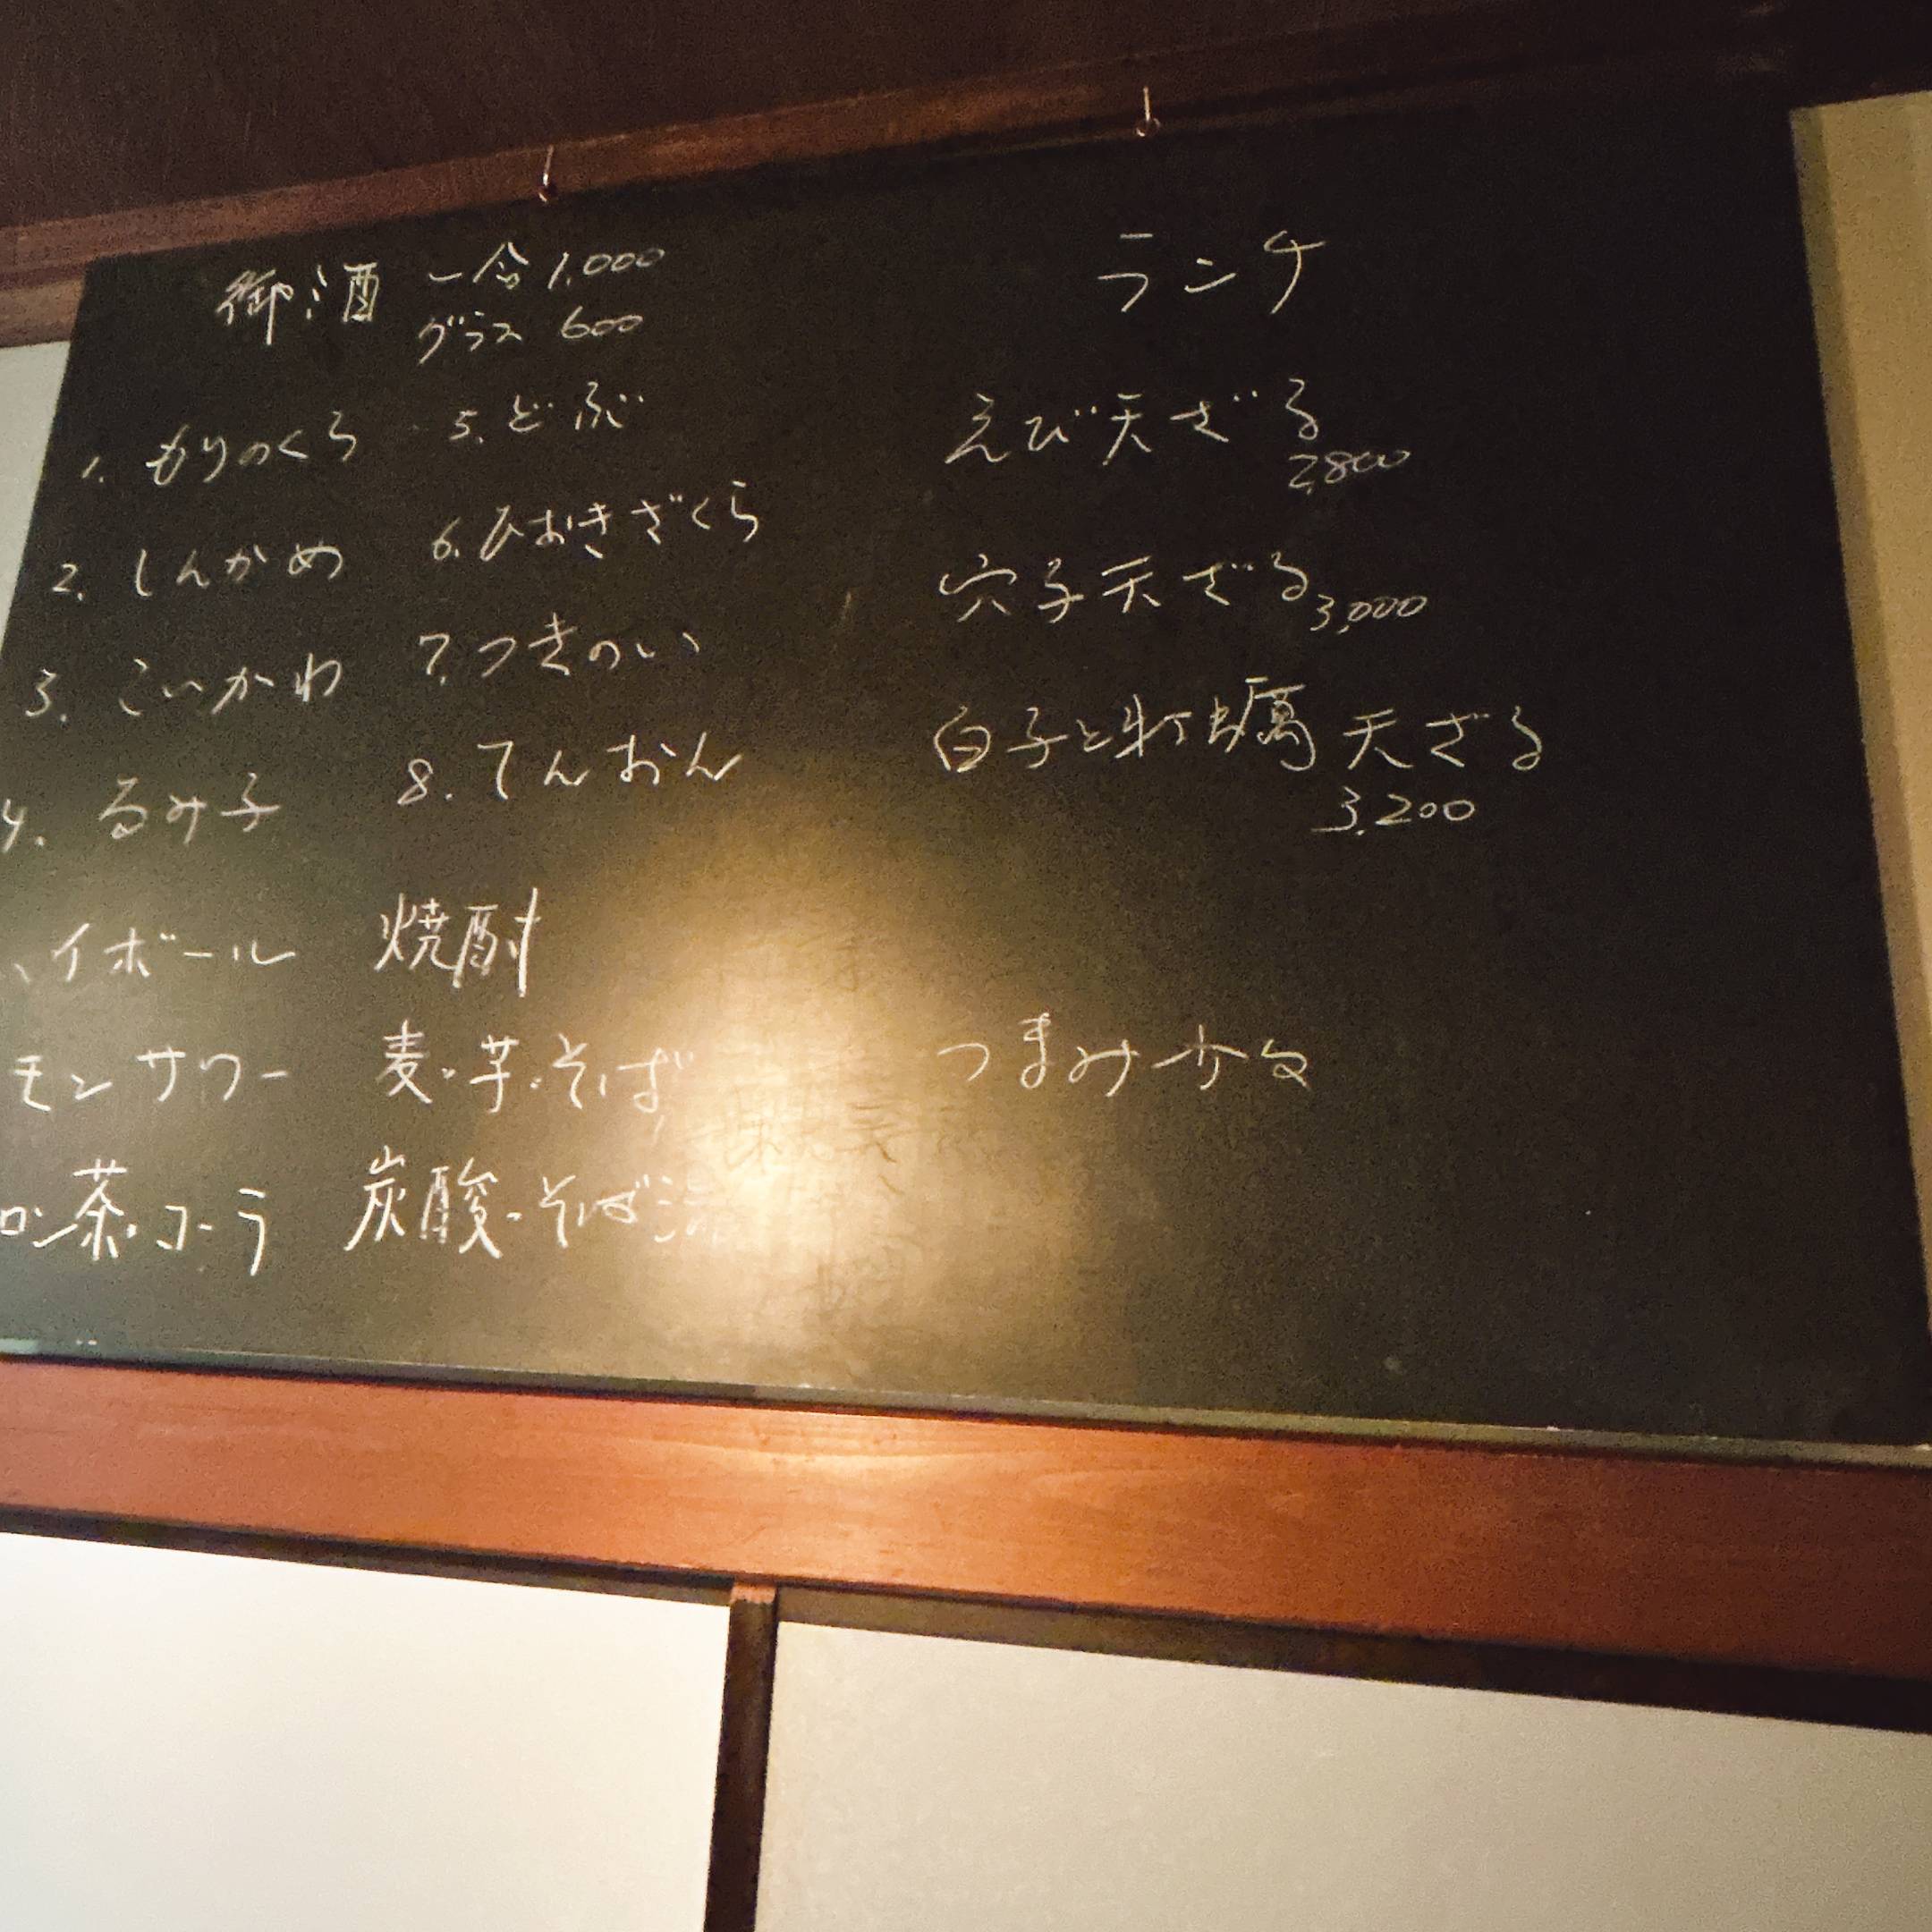 御酒 一合 1,000
グラス 600
1. もりのくら 5. どぶ
2. しんかめ 6. ひおきざくら
3. こいかわ 7. つきのい
4. るみ子 8. てんおん
ハイボール 焼酎
モンサワー 麦・芋・そば
ロン茶・コーラ 炭酸・そば湯
ランチ
えび天ざる
2,800
穴子天ざる 3,000
白子と牡蠣天ざる
3,200
つまみ少々